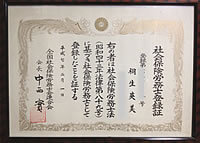 社会保険労務士登録証
登録第
桐生英美
右の者は社会保険労務士法
(昭和四十三年法律第八十九号)
に基づき社会保険労務士として
登録したことを証する
平成七年二月一日
全国社会保険労務士会連合会
会長 中西